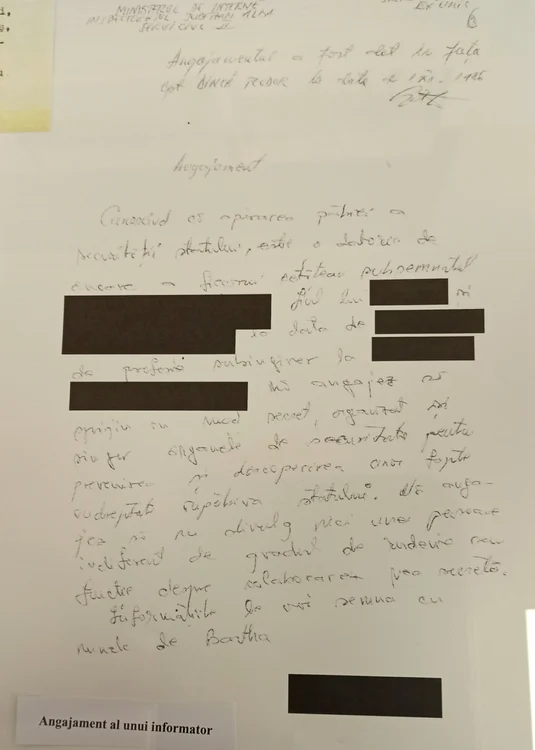 MINISTERUL DE INTERNE
INSPECTORATUL JUDEȚEAN ALBA
SERVICIUL II
Ex unic
6
Angajamentul a fost dat în fața
DINCĂ TEODOR la data de
Angajament
Cunoscînd că apărarea patriei a
securității statului, este o datorie de
onoare a fiecărui cetățean subsemnatul
fiul lui și
la data de
de profesie subinginer la
mă angajez să
sprijin în mod secret, organizat și
sincer organele de securitate pentru
prevenirea și descoperirea unor fapte
îndreptate împotriva statului. Mă anga-
jez să nu divulg nici unei persoane
indiferent de gradul de rudenie sau
funcție despre colaborarea mea secretă.
Informațiile le voi semna cu
numele de Bartha
Angajament al unui informator